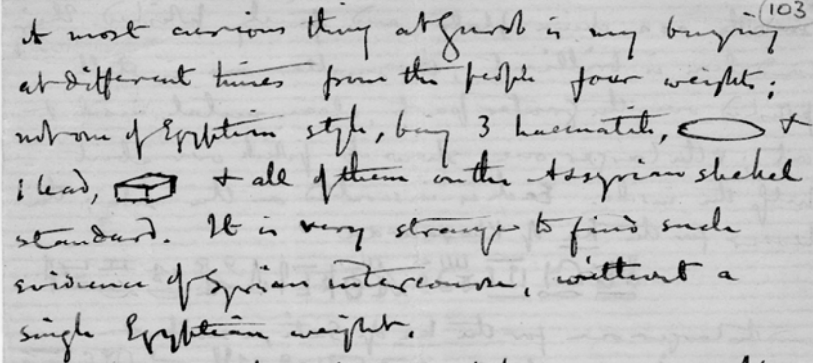 (103
A most curious thing at Gurob is my buying
at different times from the people four weights;
not one of Egyptian style, being 3 haematite, &
1 lead, & all of them on the Assyrian shekel
standard. It is very strange to find such
evidence of Syrian intercourse, without a
single Egyptian weight.